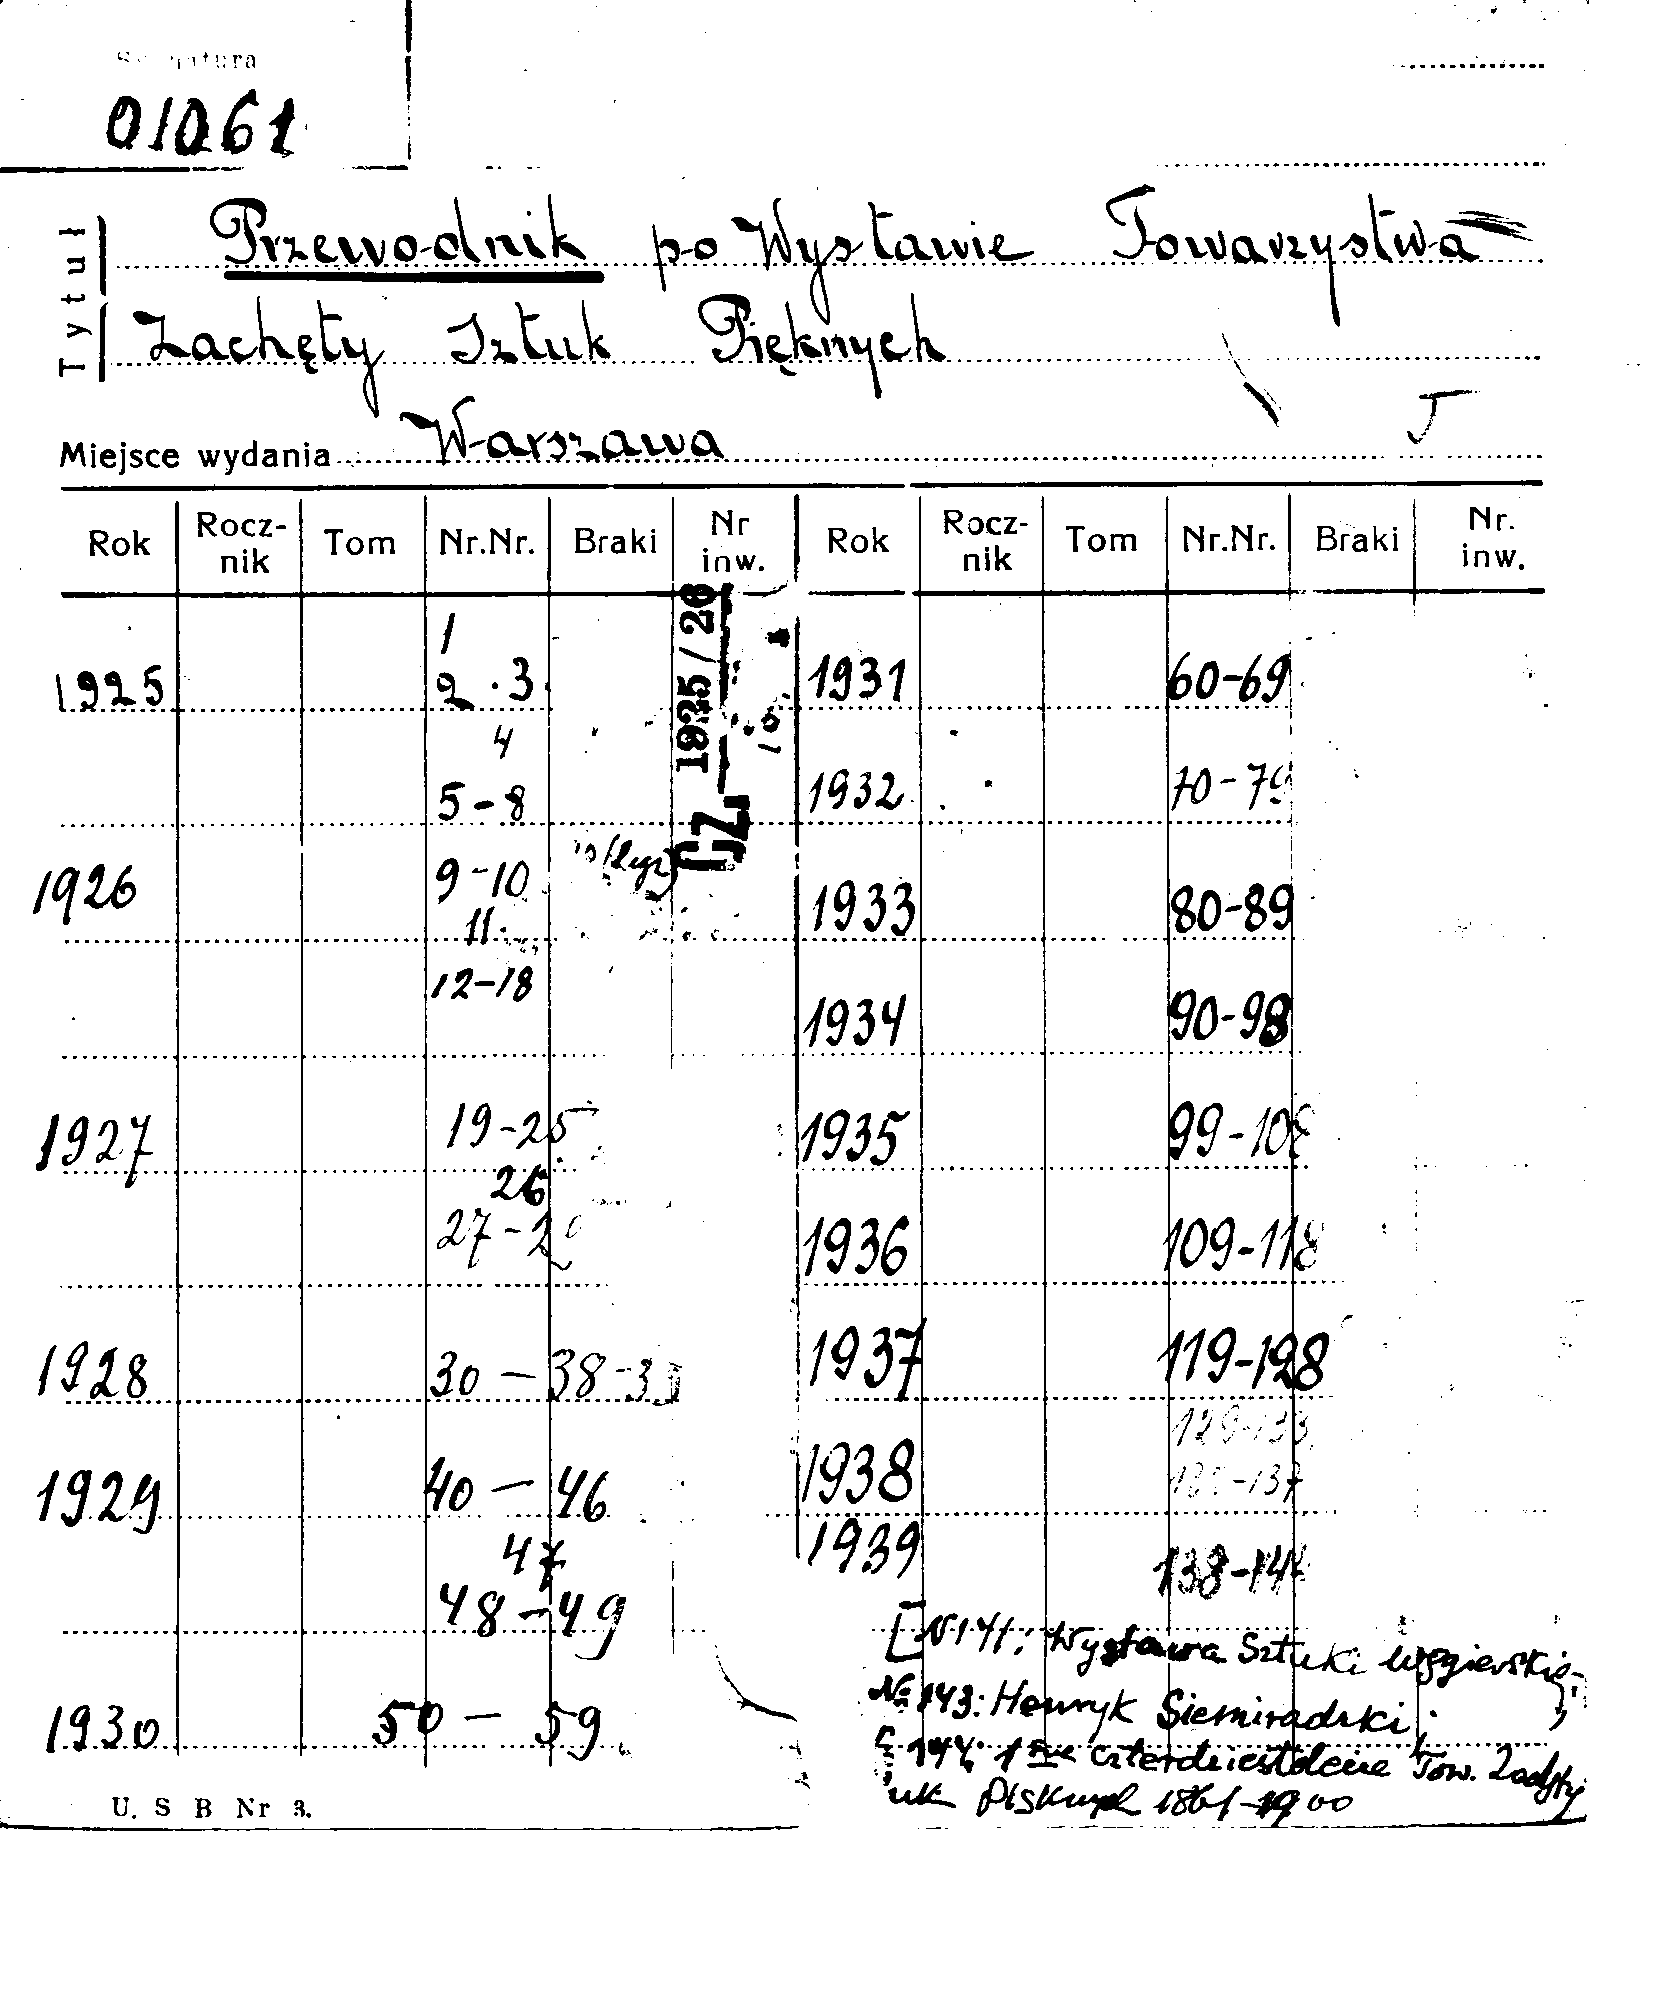 Sygnatura
01061
Tytuł
Przewodnik po Wystawie Towarzystwa
Zachęty Sztuk Pięknych
Miejsce wydania Warszawa
Rok Rocz-nik Tom Nr.Nr. Braki Nr inw. Rok Rocz-nik Tom Nr.Nr. Braki Nr. inw.
1
1925 2 · 3 1931 60-69
4
5-8 1932 70-79
CZ. 1925/26
1926 9-10 1933 80-89
11
12-18 1934 90-98
1927 19-25 1935 99-108
26
27-29 1936 109-118
1928 30 - 38-39 1937 119-128
129-133
1929 40 - 46 1938 -137
47 1939 138-144
48-49
[N 141: Wystawa Sztuki Węgierskiej
№ 143: Henryk Siemiradzki;
1930 50 - 59
144: czterdziestolecie Tow. Zachęty
1861-1900
U. S B Nr 3.